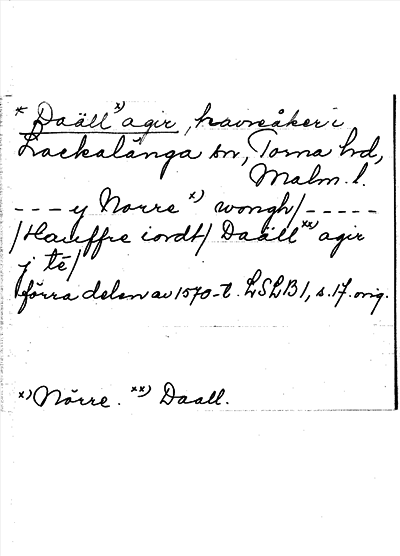 * Daäll x) agir, havreåker i
Lackalänga sn, Torna hd,
Malm. l.
--- y Norre x) wongh/-----
/Hauffre iordt/ Daäll xx) agir
j tē/
förra delen av 1570-t. LSLB 1, s. 17. orig.
x) Nörre. xx) Daall.